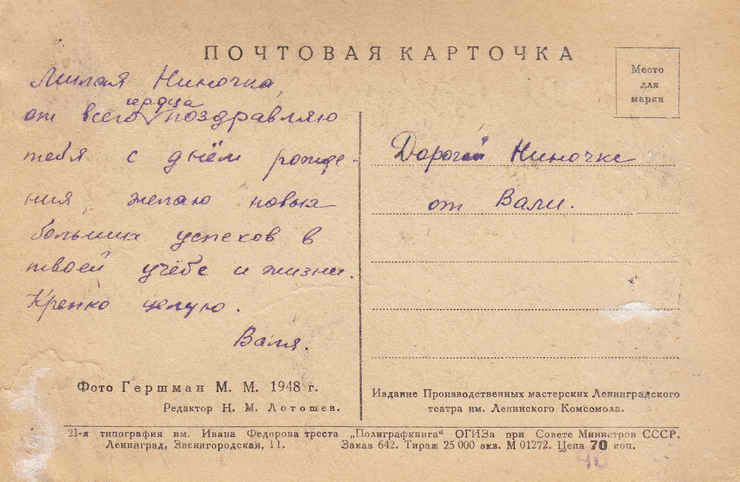 ПОЧТОВАЯ КАРТОЧКА
Место
для
марки
Милая Ниночка,
от всего сердца поздравляю
тебя с днём рожде-
ния желаю новых
больших успехов в
твоей учёбе и жизни.
Крепко целую.
Валя.
Дорогой Ниночке
от Вали.
Фото Гершман М. М. 1948 г.
Редактор Н. М. Лотошев.
Издание Производственных мастерских Ленинградского
театра им. Ленинского Комсомола.
21-я типография им. Ивана Федорова треста „Полиграфкнига" ОГИЗа при Совете Министров СССР.
Ленинград, Звенигородская, 11. Заказ 642. Тираж 25 000 экз. М 01272. Цена 70 коп.
40